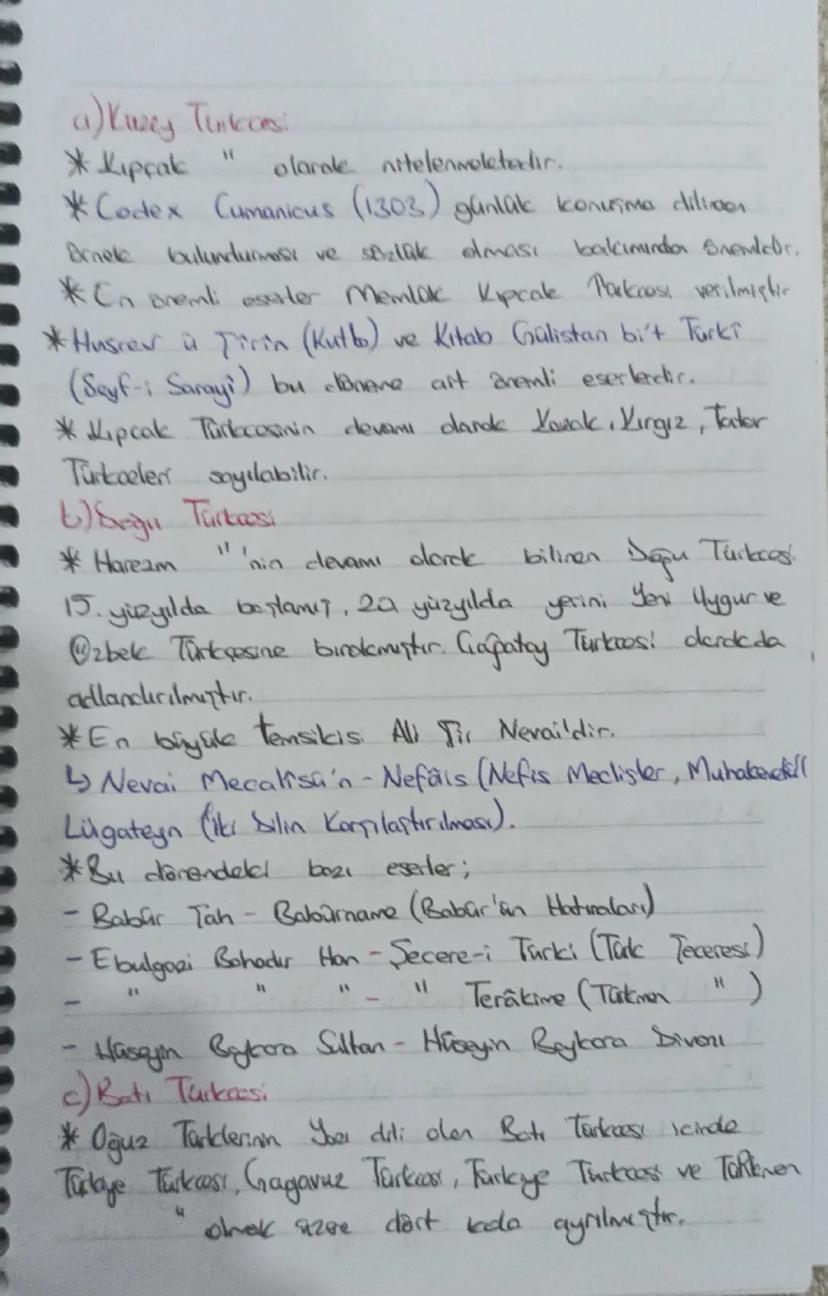 a) Kuzey Türkçesi
* Kıpçak " olarak nitelenmektedir.
* Codex Cumanicus (1303) günlük konuşma dilinden
örnek bulundurması ve sözlük olması bakımından önemlidir.
* En önemli eserler Memlük Kıpçak Türkçesi verilmiştir
* Husrev ü Şirin (Kutb) ve Kitab Gülistan bi't Türkî
(Seyf-i Sarayî) bu döneme ait önemli eserlerdir.
* Kıpçak Türkçesinin devamı olarak Kazak, Kırgız, Tatar
Türkçeleri sayılabilir.
b) Doğu Türkçesi
* Harezm "'nin devamı olarak bilinen Doğu Türkçesi
15. yüzyılda başlamış, 20 yüzyılda yerini Yeni Uygur ve
Özbek Türkçesine bırakmıştır. Çağatay Türkçesi olarak da
adlandırılmıştır.
* En büyük temsilcisi Ali Şir Nevai'dir.
↳ Nevai Mecalisü'n - Nefâis (Nefis Meclisler,
Lügateyn (İki Dilin Karşılaştırılması).
* Bu dönemdeki bazı eserler;
- Babür Şah - Babürname (Babür'ün Hatıraları)
- Ebulgazi Bahadır Han - Şecere-i Türki (Türk Şeceresi)
- " " " - " Terâkime (Türkmen " )
- Hüseyin Baykara Sultan - Hüseyin Baykara Divanı
c) Batı Türkçesi
* Oğuz Türklerinin yazı dili olan Batı Türkçesi içinde
Türkiye Türkçesi, Gagavuz Türkçesi, Türkiye Türkçesi ve Türkmen
" olmak üzere dört kola ayrılmıştır.